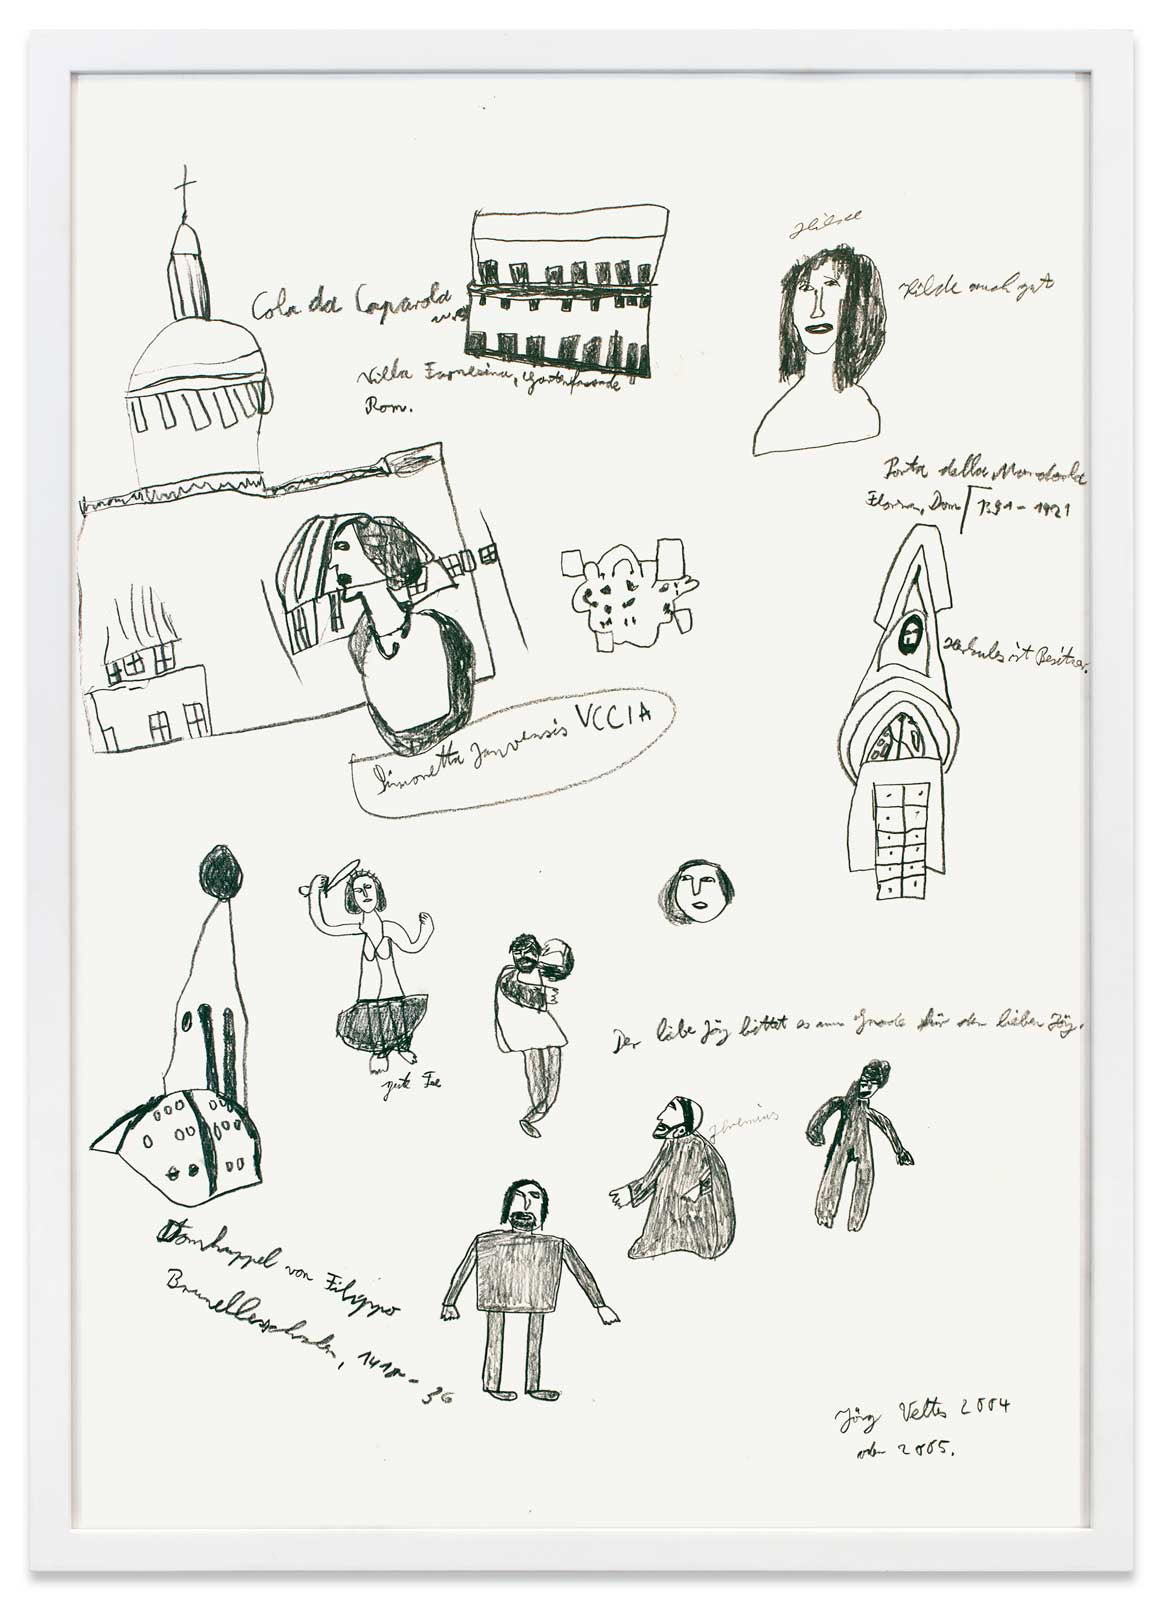 Hilde
Cola da Caparola
Hilde auch gut
Villa Farnesina, Gartenfassade
Rom.
Porta della Mandorla
Florenz, Dom 1391 - 1421
Herkules ist Besitzer.
Simonetta Januensis VCCIA
gute Fee
Der liebe Jörg bittet es um Gnade für den lieben Jörg.
Jheremias
Domkuppel von Filippo
1418 - 36
Jörg Veltes 2004
oder 2005.